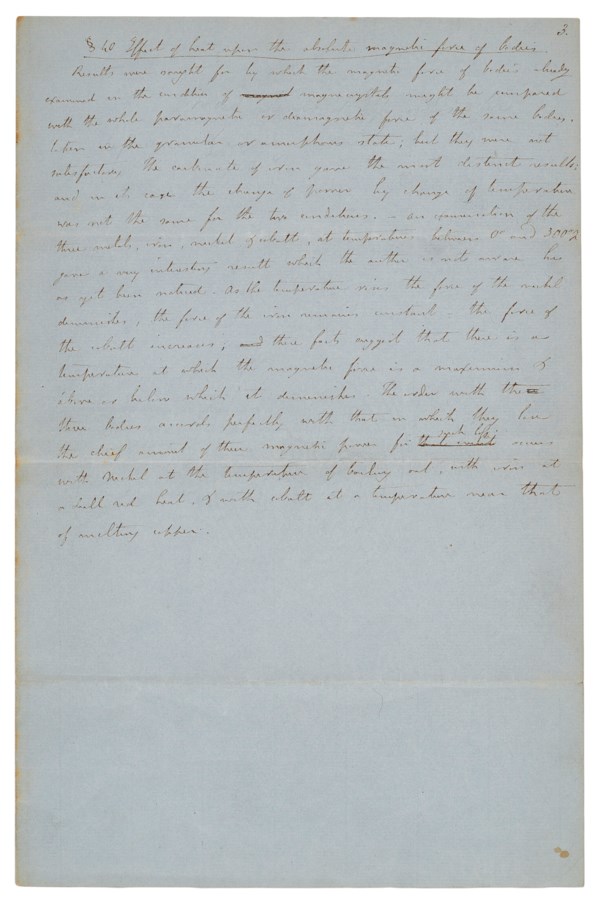 3.
§ 40 Effect of heat upon the absolute magnetic force of bodies.
Results were sought for by which the magnetic force of bodies already
examined in the condition of magnecrystals might be compared
with the whole paramagnetic or diamagnetic force of the same bodies,
taken in the granular or amorphous state; but they were not
satisfactory. The carbonate of iron gave the most distinct results;
and in its case the change of power by change of temperature
was not the same for the two conditions. - An examination of the
three metals, iron, nickel & cobalt, at temperatures between 0° and 300°
gave a very interesting result which the author is not aware has
as yet been noticed. As the temperature rises the force of the nickel
diminishes, the force of the iron remains constant: the force of
the cobalt increases; and these facts suggest that there is a
temperature at which the magnetic force is a maximum &
above or below which it diminishes. The order with the
three bodies accords perfectly with that in which they lose
the chief amount of their magnetic power for such loss occurs
with Nickel at the temperature of boiling oil, with iron at
a dull red heat, & with cobalt at a temperature near that
of melting copper.